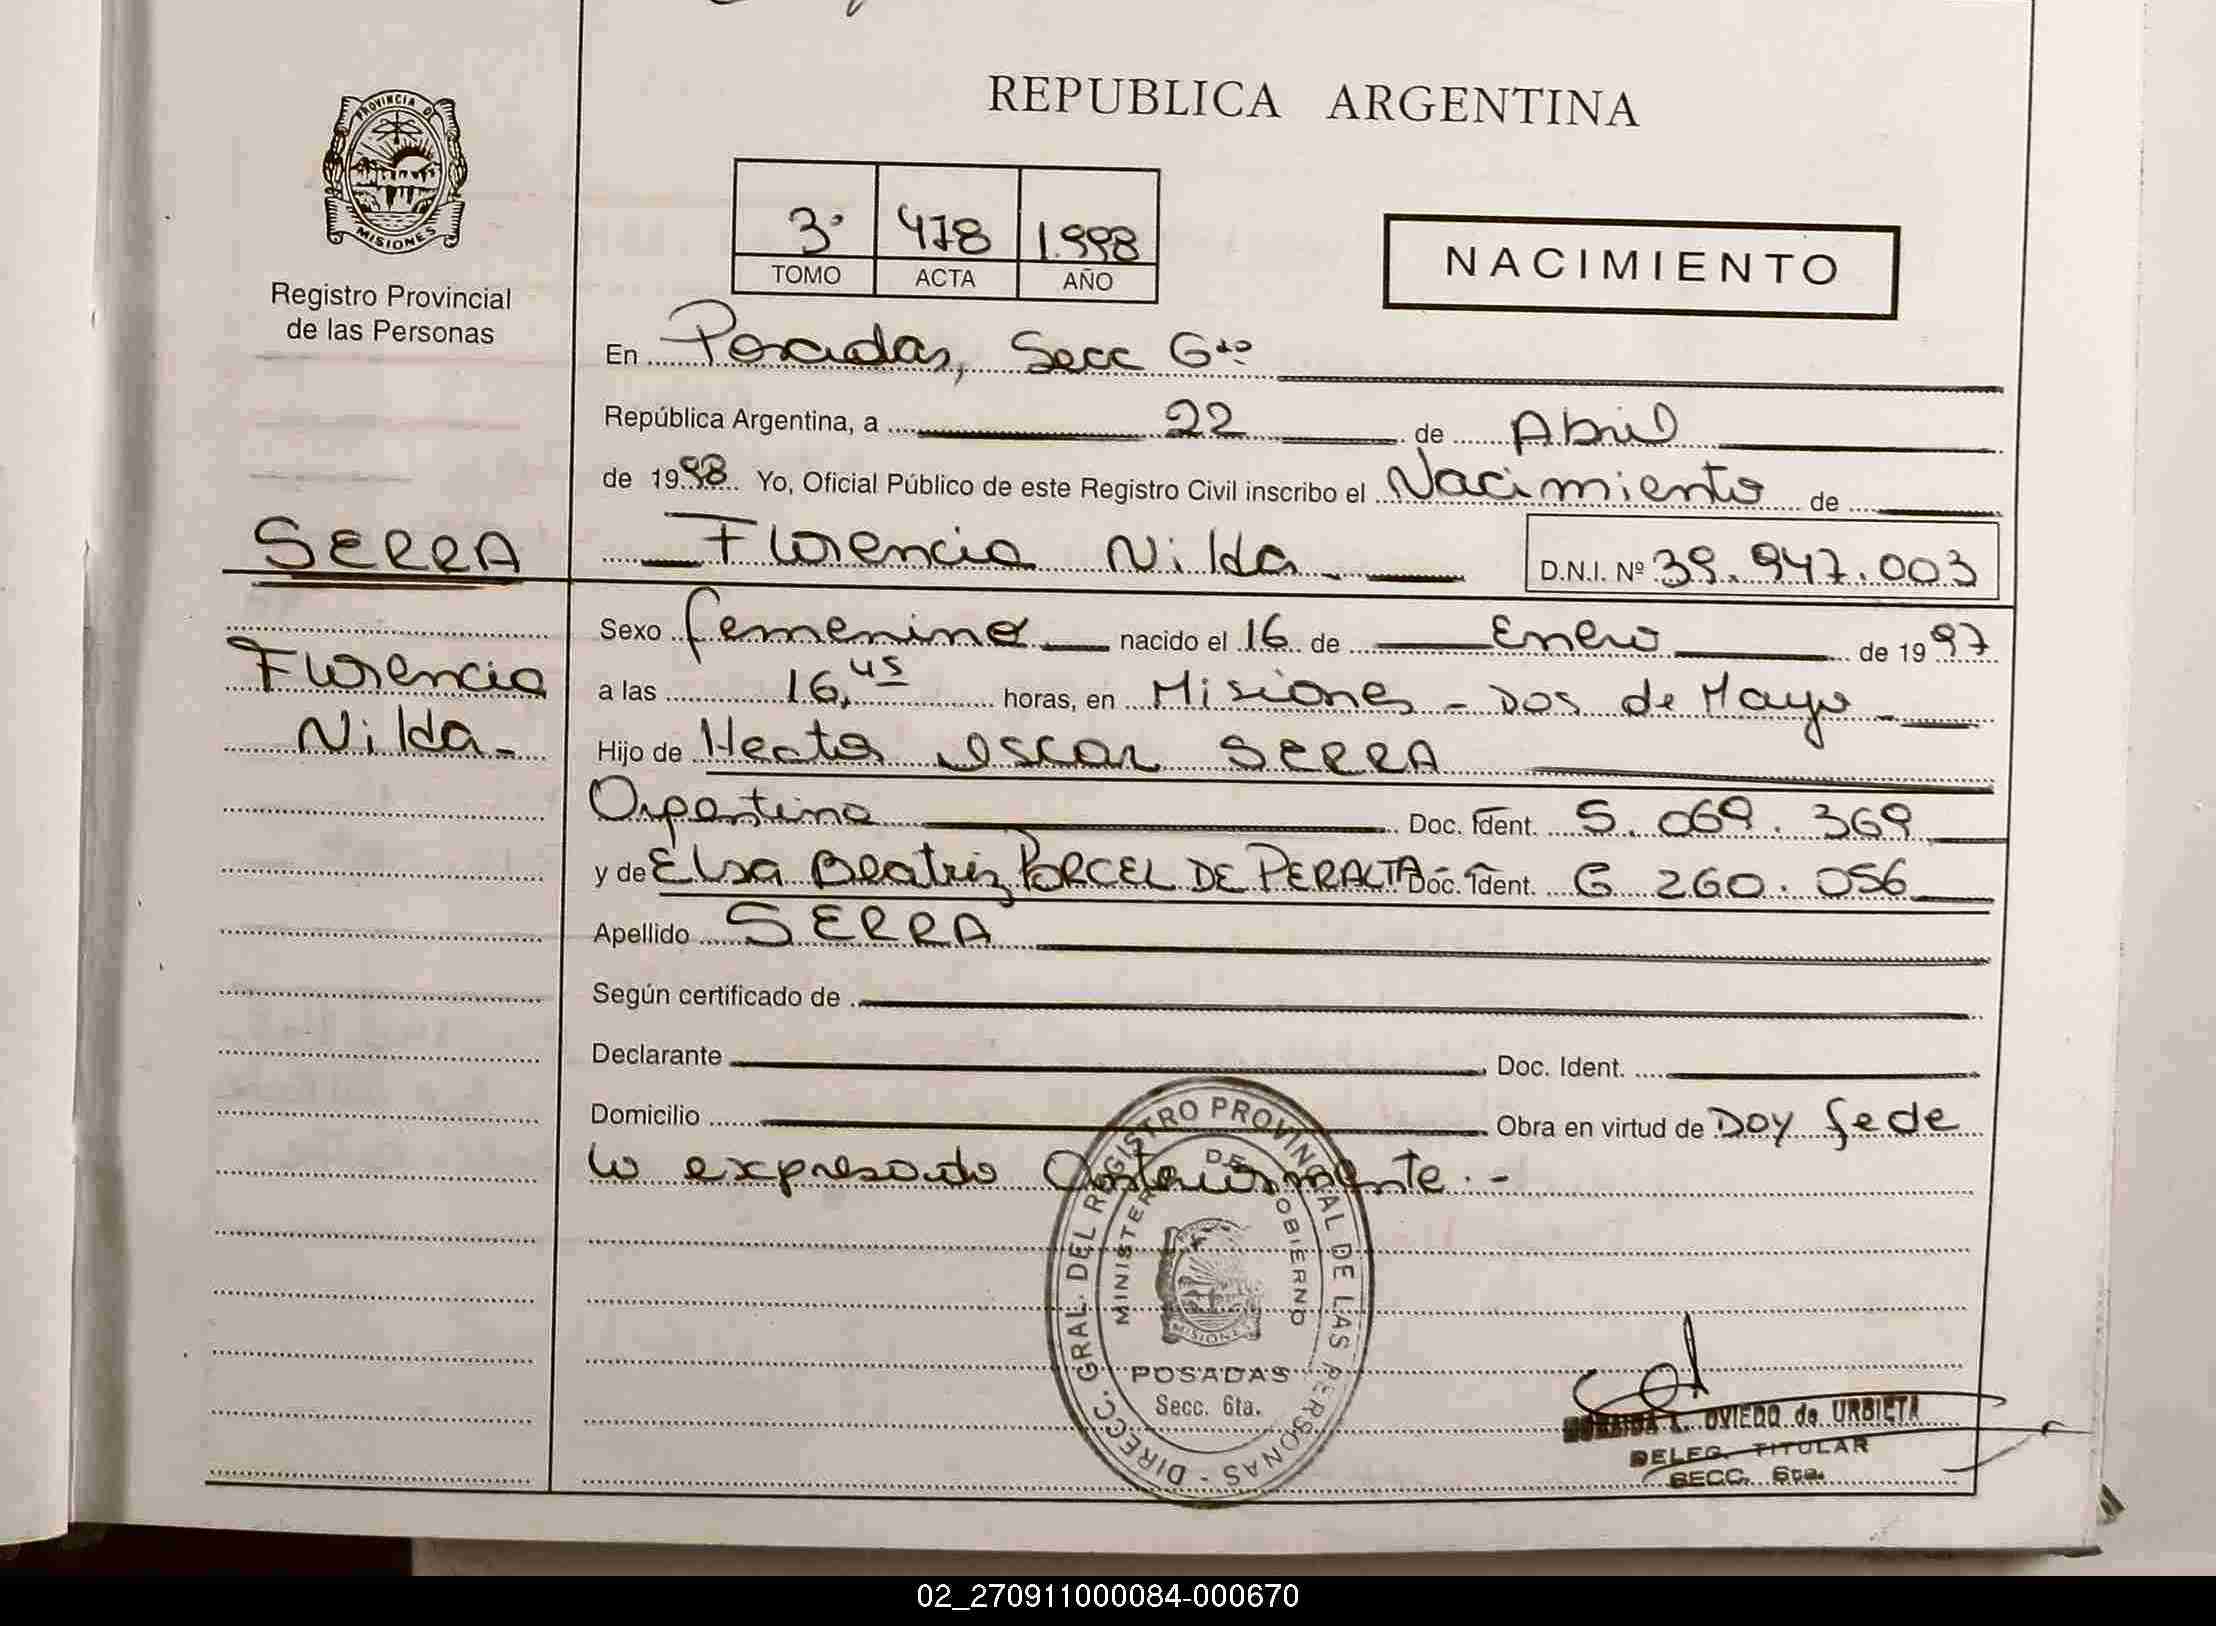 REPUBLICA ARGENTINA
PROVINCIA DE
MISIONES
Registro Provincial
de las Personas
3º 478 1.998
TOMO ACTA AÑO
NACIMIENTO
En Posadas, Secc 6ta
República Argentina, a 22 de Abril
de 1998 Yo, Oficial Público de este Registro Civil inscribo el Nacimiento de
SERRA
Florencia Nilda D.N.I. Nº 39.947.003
Sexo femenino nacido el 16 de Enero de 1997
Florencia
a las 16,45 horas, en Misiones - Dos de Mayo -
Nilda -
Hijo de Hector Oscar SERRA
Argentino Doc. Ident. 5.069.369
y de Elsa Beatriz PORCEL DE PERALTA Doc. Ident. 6 260.056
Apellido SERRA
Según certificado de
Declarante Doc. Ident.
Domicilio Obra en virtud de DOY fe de
lo expresado Anteriormente.-
DIRECC. GRAL. DEL REGISTRO PROVINCIAL DE LAS PERSONAS -
MINISTERIO DE GOBIERNO
MISIONES
POSADAS
Secc. 6ta.
OVIEDO de URBIETA
DELEG. TITULAR
SECC. 6ta.
02_270911000084-000670